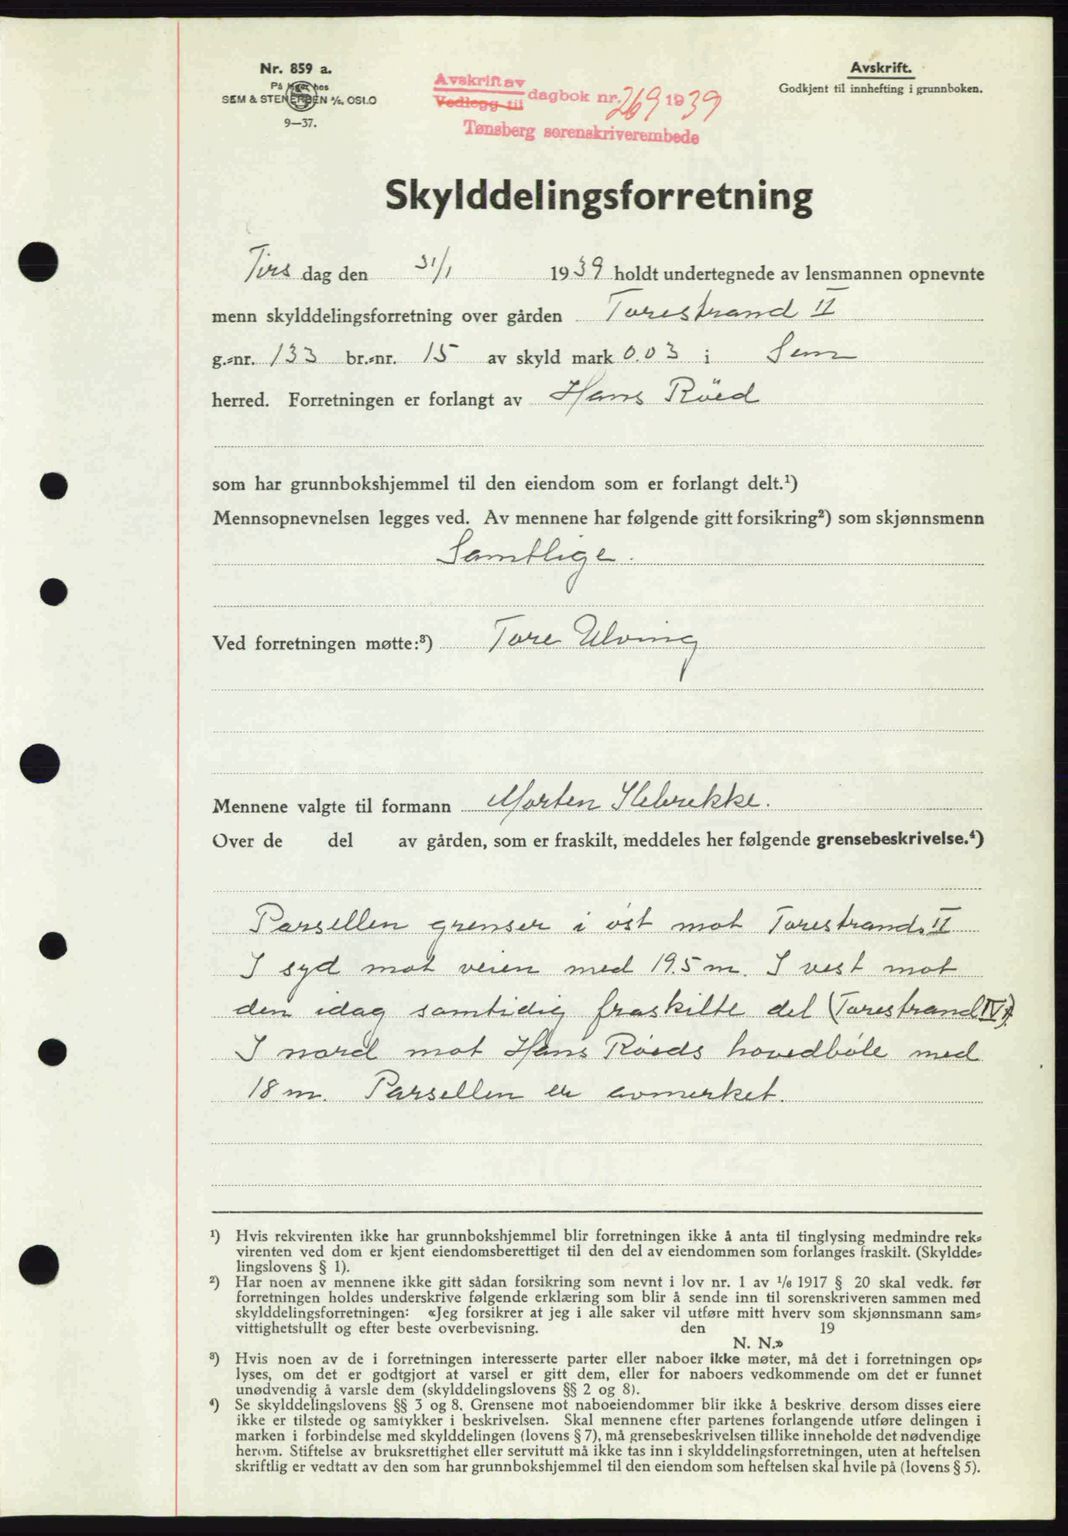 Nr. 859 a.
På lager hos
SEM & STENERSEN A/S. OSLO
9—37.
Avskrift av
Vedlegg til
dagbok nr. 269 1939
Tønsberg sorenskriverembede
Avskrift.
Godkjent til innhefting i grunnboken.
Skylddelingsforretning
Tirs dag den 31/1 1939 holdt undertegnede av lensmannen opnevnte
menn skylddelingsforretning over gården Torestrand II
g.-nr. 133 br.-nr. 15 av skyld mark 0.03 i Sem
herred. Forretningen er forlangt av Hans Röed
som har grunnbokshjemmel til den eiendom som er forlangt delt.¹)
Mennsopnevnelsen legges ved. Av mennene har følgende gitt forsikring²) som skjønnsmenn
Samtlige.
Ved forretningen møtte:³) Tore Ulving
Mennene valgte til formann Morten Ilebrekke.
Over de del av gården, som er fraskilt, meddeles her følgende grensebeskrivelse.⁴)
Parsellen grenser i øst mot Torestrand II
I syd mot veien med 19.5 m. I vest mot
den idag samtidig fraskilte del (Torestrand IV).
I nord mot Hans Röeds hovedbøle med
18 m. Parsellen er avmerket.
¹) Hvis rekvirenten ikke har grunnbokshjemmel blir forretningen ikke å anta til tinglysing medmindre rek-
virenten ved dom er kjent eiendomsberettiget til den del av eiendommen som forlanges fraskilt. (Skyldde-
lingslovens § 1).
²) Har noen av mennene ikke gitt sådan forsikring som nevnt i lov nr. 1 av 1/6 1917 § 20 skal vedk. før
forretningen holdes underskrive følgende erklæring som blir å sende inn til sorenskriveren sammen med
skylddelingsforretningen: «Jeg forsikrer at jeg i alle saker vil utføre mitt hverv som skjønnsmann sam-
vittighetsfullt og efter beste overbevisning. den 19
N. N.»
³) Hvis noen av de i forretningen interesserte parter eller naboer ikke møter, må det i forretningen op-
lyses, om det er godtgjort at varsel er gitt dem, eller for naboers vedkommende om det er funnet
unødvendig å varsle dem (skylddelingslovens §§ 2 og 8).
⁴) Se skylddelingslovens §§ 3 og 8. Grensene mot naboeiendommer blir ikke å beskrive dersom disses eiere
ikke er tilstede og samtykker i beskrivelsen. Skal mennene efter partenes forlangende utføre delingen i
marken i forbindelse med skylddelingen (lovens § 7), må grensebeskrivelsen tillike inneholde det nødvendige
herom. Stiftelse av bruksrettighet eller servitutt må ikke tas inn i skylddelingsforretningen, uten at heftelsen
skriftlig er vedtatt av den som har grunnbokshjemmel til den eiendom som heftelsen skal hvile på (lovens § 5).